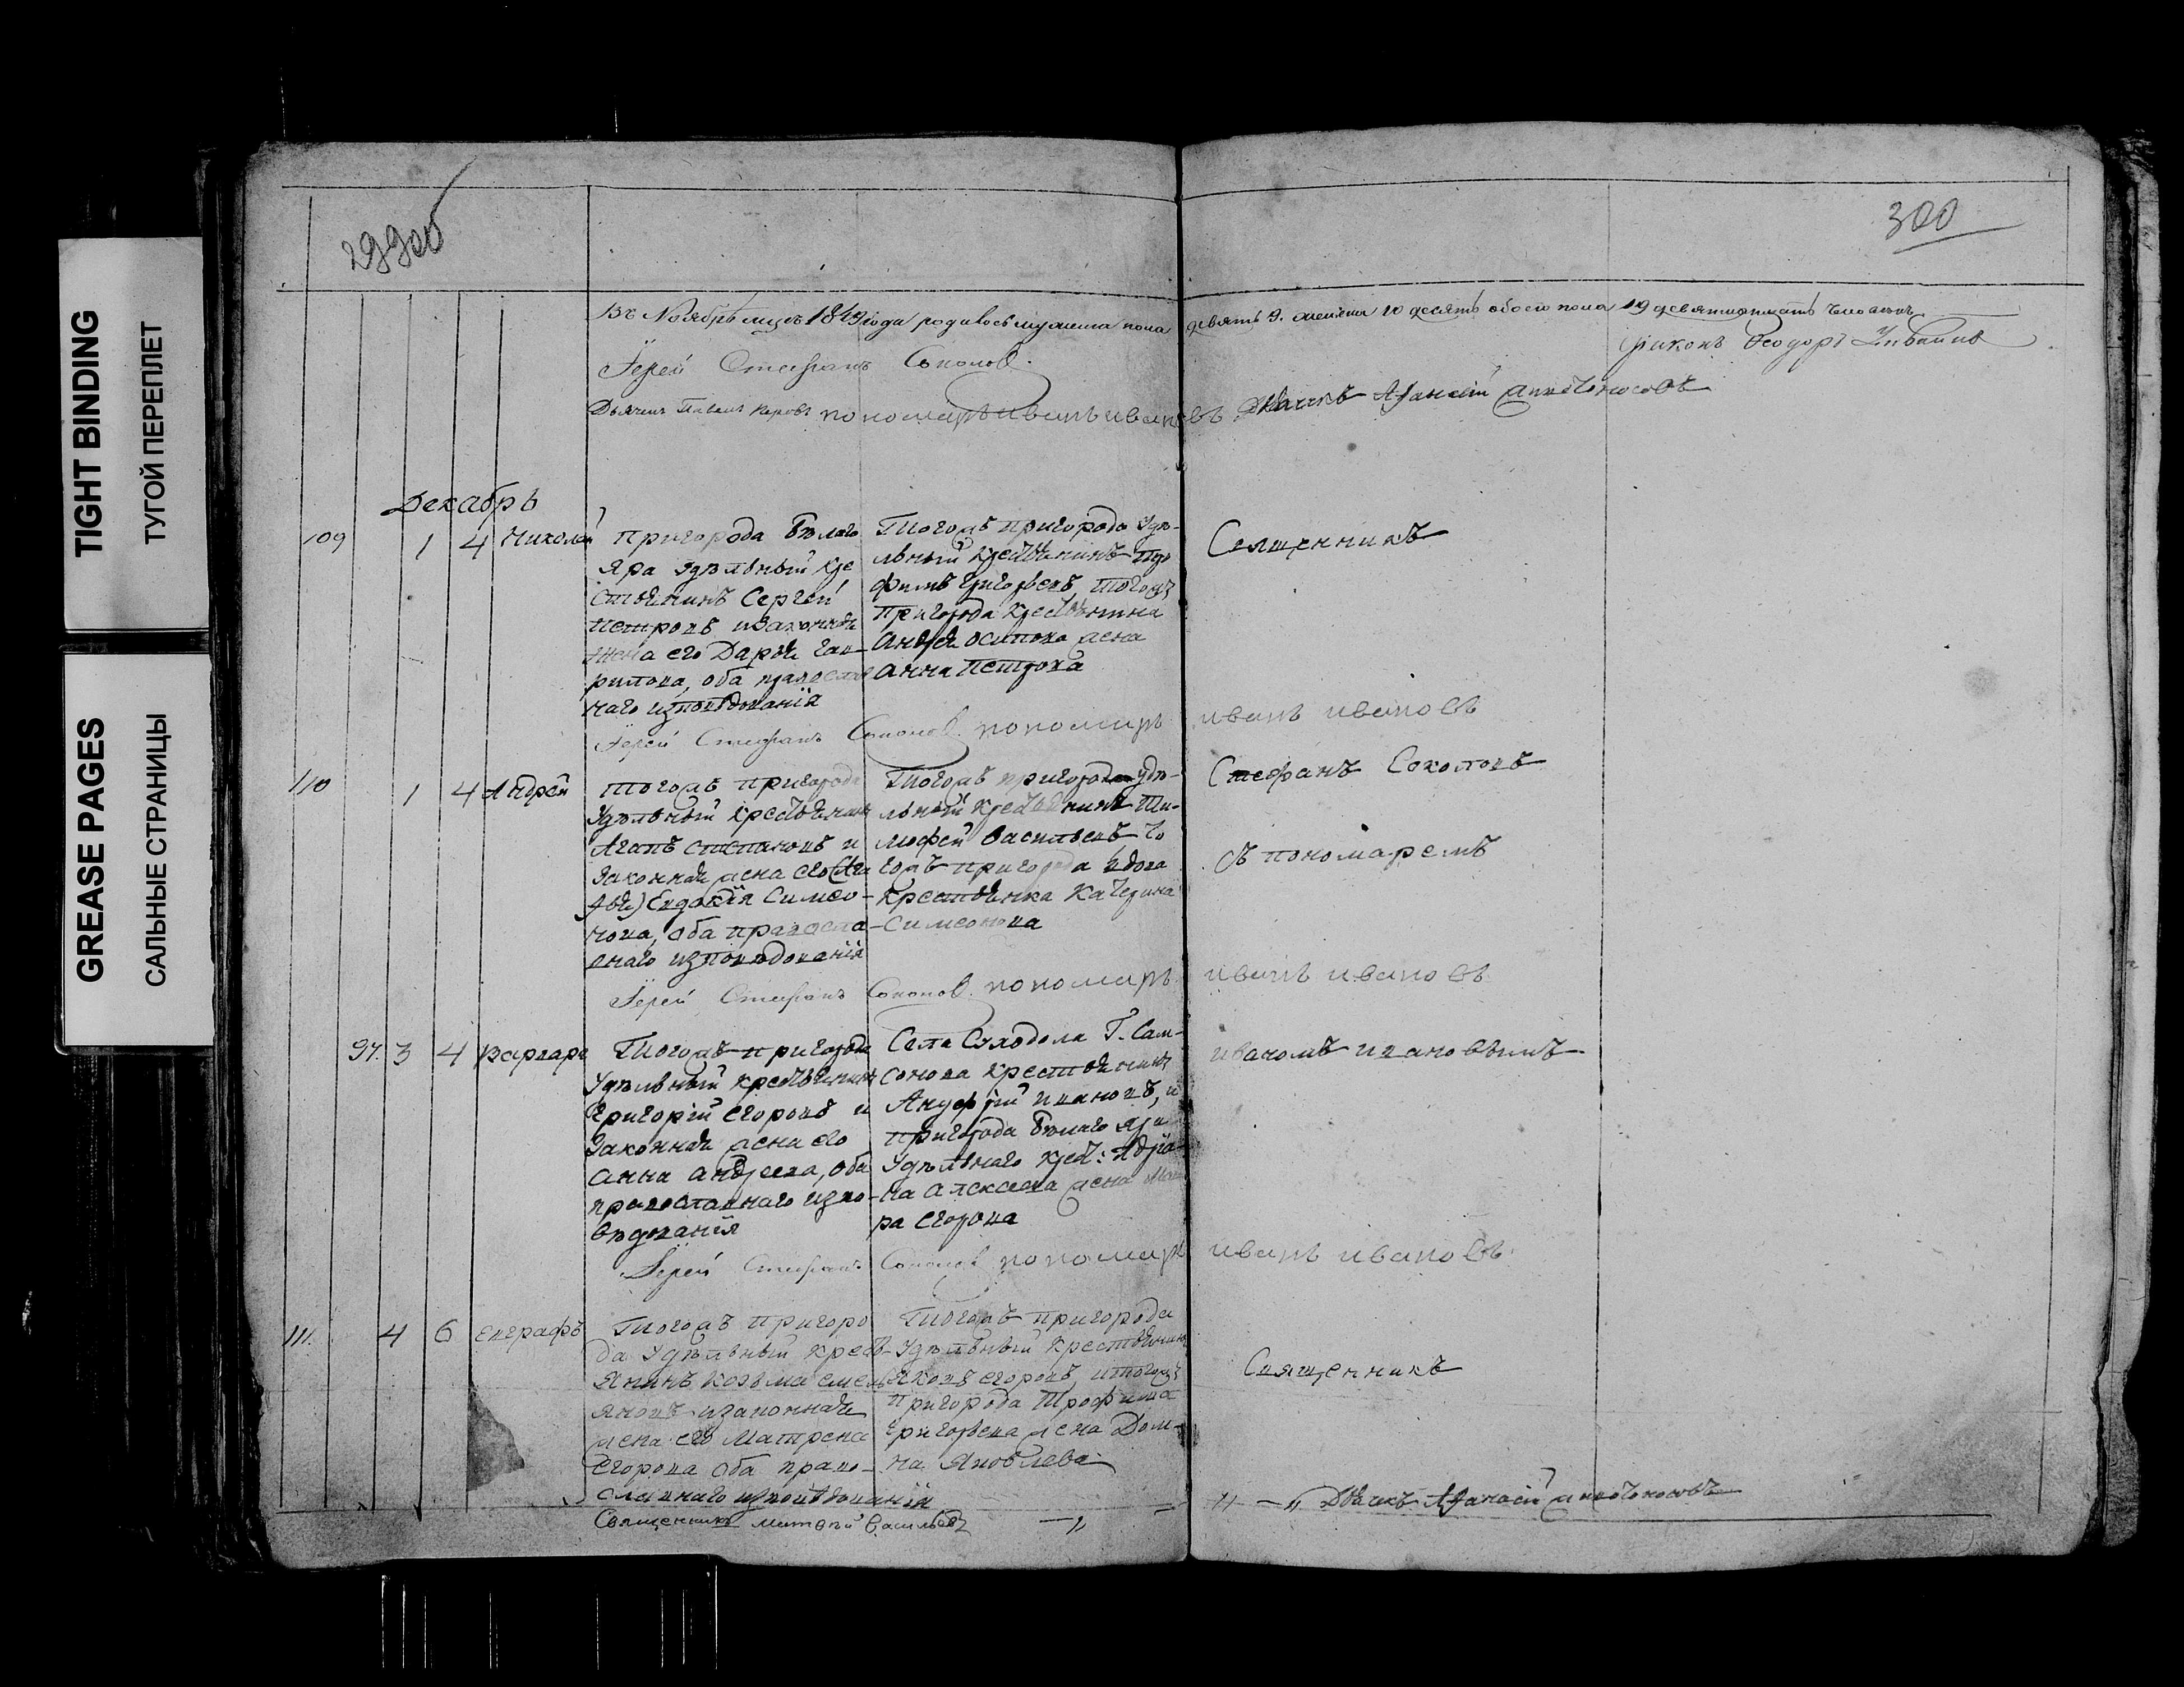 TIGHT BINDING
ТУГОЙ ПЕРЕПЛЕТ
GREASE PAGES
САЛЬНЫЕ СТРАНИЦЫ
299об
300
Въ Ноябрѣ мцѣ 1849 года родилось мужеска пола девять 9. женска 10 десять обоего пола 19 девятнатцать человекъ
Іерей Стефанъ Соколов. Діаконъ Феодоръ
Дьячек Павел пономарь иванъ ивановъ Дьячекъ Афанасій
Декабрь
109 1 4 Николай
Пригорода Бѣлаго
Яра Удѣльный кре
стьянинъ Сергей
Петровъ и законная
жена его Дарья Гав-
рилова, оба православ
наго исповѣданія
Тогожъ пригорода Удѣ-
льный крестьянинъ Тро
фимъ Григорьевъ, тогожъ
пригорода крестьянина
Андрея Осипова жена
Анна Петрова
Священникъ
Іерей Стефанъ Соколов. пономарь иванъ ивановъ
110 1 4 Андрей
Тогожъ пригорода
Удѣльный крестьянинъ
Агапъ Степановъ и
законная жена его (Ага
фья) Евдокія Симео-
нова, оба правосла-
внаго исповѣданія
Тогожъ пригорода удѣ-
льный крестьянинъ Ти-
мофей Васильевъ То
гожъ пригорода вдова
крестьянка Катерина
Симеонова
Стефанъ Соколовъ
съ пономаремъ
Іерей Стефанъ Соколов. пономарь иванъ ивановъ
97. 3 4 Варвара
Тогожъ пригорода
Удѣльный крестьянинъ
Григорій Егоровъ и
законная жена его
Анна Андреева, оба
православнаго испо-
вѣданія
Села Суходола Г. Сам-
сонова крестьянинъ
Ануфрій Ивановъ, и
пригорода Бѣлаго Яра
Удѣльнаго крес: Адріа-
на Алексеева жена Мав
ра Егорова
иваномъ ивановымъ
Іерей Стефанъ Соколов пономарь иванъ ивановъ.
111. 4 6 Евграфъ
Тогожъ пригоро
да Удѣльный крест-
янинъ Козьма Емель
яновъ и законная
жена его Матрена
Егорова оба право-
славнаго исповѣданія
Тогожъ пригорода
Удѣльный крестьянинъ
Яковъ Егоровъ, и тогожъ
пригорода Трофима
Григорьева жена Дом-
на Яковлева
Священникъ
Священникъ Матвѣй Васильевъ —„ = „ —„ Дьячекъ Афанасій